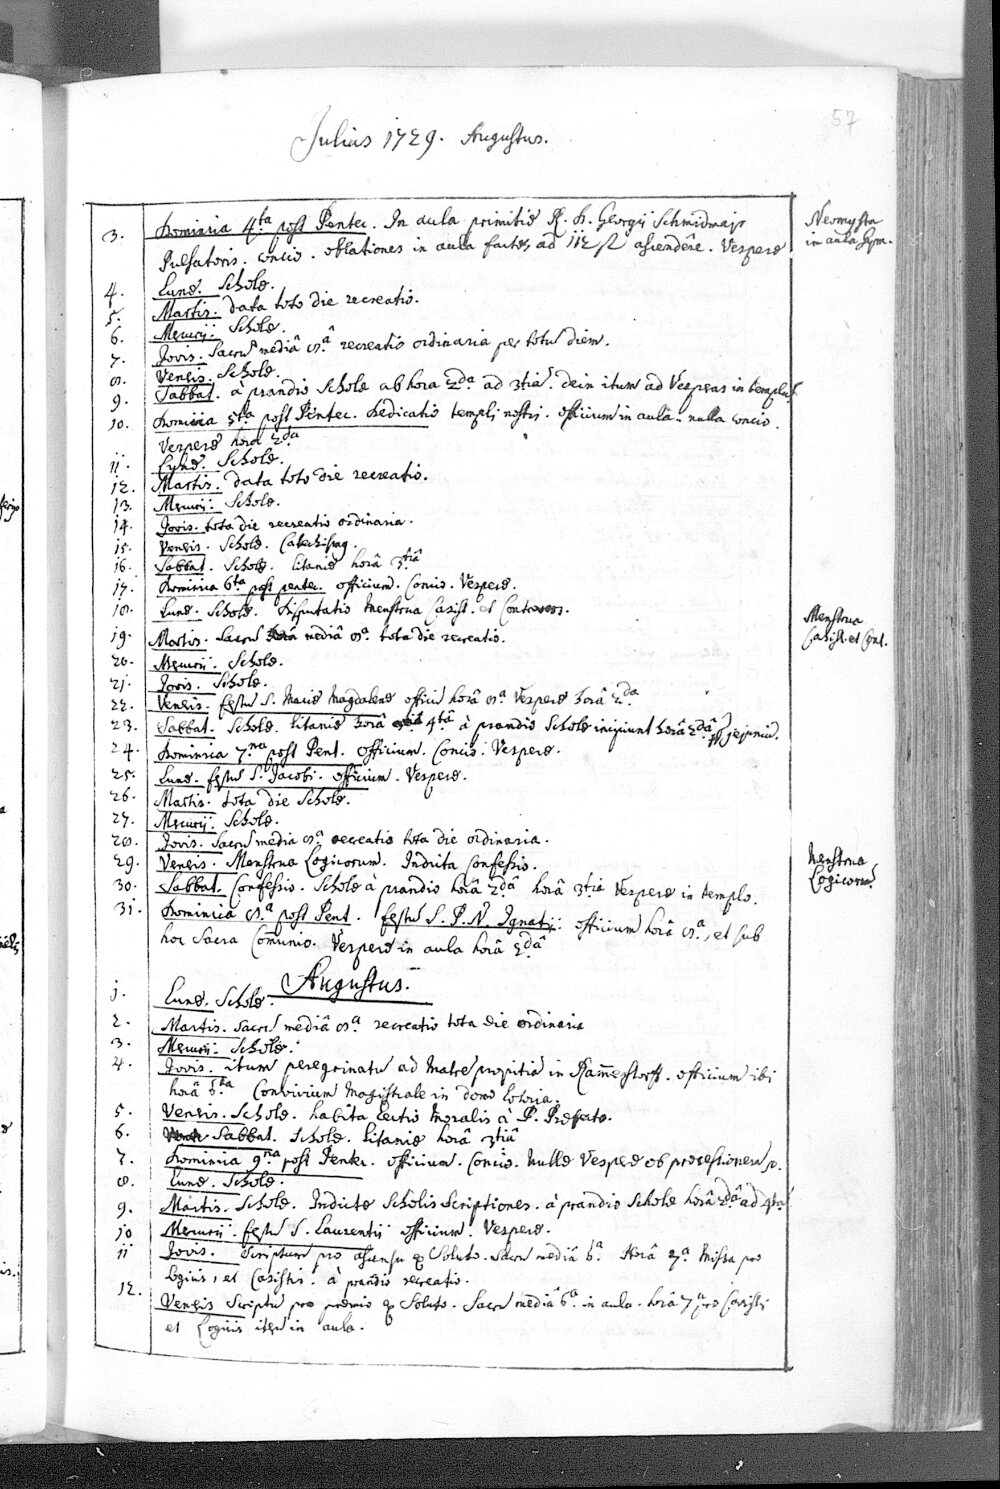 57
Julius 1729. Augustus.
3. Dominica 4ta post Pentec. In aula primitiæ R. D. Georgij Schmidmajr
Neomysta
in aula Gym.
Pulsatoris. concio. oblationes in aula factæ, ad 112 fl ascendêre. Vesperæ
4. Lunæ. Scholæ.
5. Martis. data toto die recreatio.
6. Mercurij. Scholæ.
7. Jovis. Sacrum mediâ 8.â recreatio ordinaria per totum diem.
8. Veneris. Scholæ.
9. Sabbat. à prandio Scholæ ab hora 2da ad 3tiam. dein itum ad Vesperas in templum
10. Dominica 5ta post Pentec. Dedicatio templi nostri. officium in aula. nulla concio.
Vesperæ horâ 2dâ
11. Lunæ. Scholæ.
12. Martis. data toto die recreatio.
13. Mercurij. Scholæ.
14. Jovis. tota die recreatio ordinaria.
15. Veneris. Scholæ. Catechismg.
16. Sabbat. Scholæ. litaniæ horâ 3tiâ
17. Dominica 6ta post pentec. officium. Concio. Vesperæ.
18. Lunæ. Scholæ. Disputatio Menstrua Casist. et Controvers.
Menstrua
Casist. et Cont.
19. Martis. Sacrum mediâ 8.â tota die recreatio.
20. Mercurij. Scholæ.
21. Jovis. Scholæ.
22. Veneris. festum S. Mariæ Magdalenæ officium horâ 8.â Vesperæ horâ 2da
23. Sabbat. Scholæ. litaniæ horâ 4tâ à prandio Scholæ incipiunt horâ 2dâ jejunium.
24. Dominica 7ma post Pent. officium. Concio. Vesperæ.
25. Lunæ. festum S. Jacobi. officium. Vesperæ.
26. Martis. tota die Scholæ.
27. Mercurij. Scholæ.
28. Jovis. Sacrum media 8.â recreatio tota die ordinaria.
29. Veneris. Menstrua Logicorum. Indicta Confessio.
Menstrua
Logicorum.
30. Sabbat. Confessio. Scholæ à prandio horâ 2dâ horâ 3tiâ Vesperæ in templo.
31. Dominica 8.a post Pent. festum S. P. N. Ignatij officium horâ 8.a, et sub
hoc Sacra Comunio. Vesperæ in aula horâ 2dâ
Augustus.
1. Lunæ. Scholæ.
2. Martis. Sacrum mediâ 8.a recreatio tota die ordinaria
3. Mercurij. Scholæ.
4. Jovis. itum peregrinatum ad Matrem propitiam in Ramerstorff. officium ibi
horâ 6.ta Convivium Magistrale in domo Lotoria.
5. Veneris. Scholæ. habita lectio Moralis à P. Præfecto.
6. Sabbat. Scholæ. litaniæ horâ 3tiâ
7. Dominica 9na post Pentec. officium. Concio. Nullæ Vesperæ ob processionem p.
8. Lunæ. Scholæ.
9. Martis. Scholæ. Indictæ Scholis Scriptiones. à prandio Scholæ horâ 2dâ ad 4ta
10 Mercurij. festum S. Laurentij officium. Vesperæ.
11 Jovis. Scriptum pro ascensu ex Soluto. Sacrum mediâ 6.a Horâ 7.a Missa pro
Logicis, et Casistis. à prandio recreatio.
12. Veneris Scriptum pro præmio ex Soluto. Sacrum mediâ 6.a in aula. horâ 7.a pro Casistis
et Logicis item in aula.